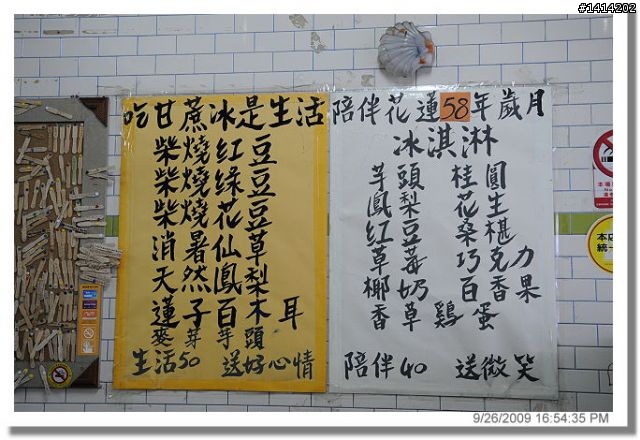 #1414202
吃甘蔗冰是生活
柴燒紅豆
柴燒綠豆
柴燒花豆
消暑仙草
天然鳳梨
蓮子百木耳
麥芽芋頭
生活50 送好心情
陪伴花蓮58年歲月
冰淇淋
芋頭 桂圓
鳳梨 花生
紅豆 桑椹
草莓 巧克力
椰奶 百香果
香草 雞蛋
陪伴40 送微笑
9/26/2009 16:54:35 PM